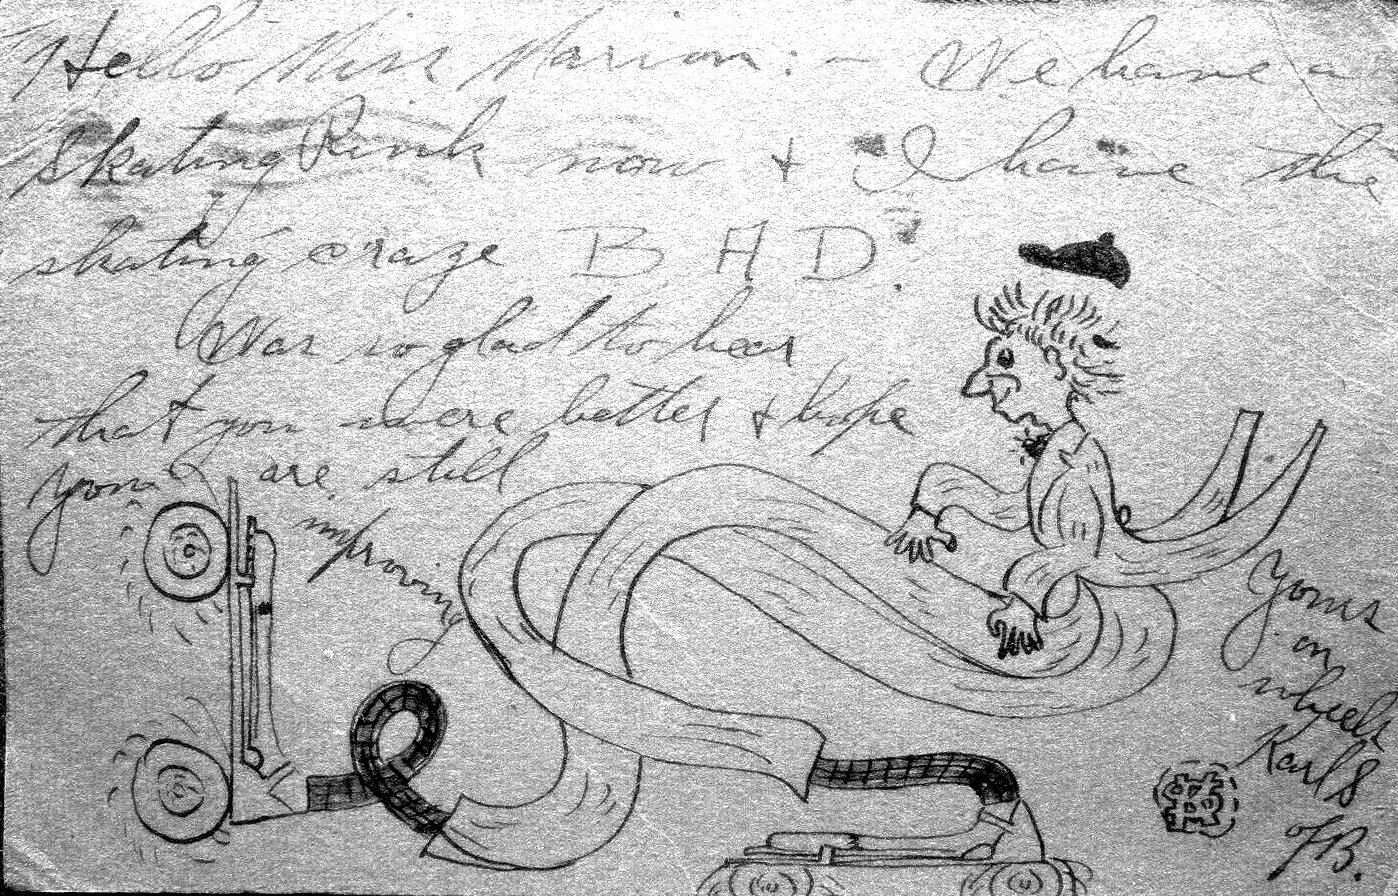 Hello Miss Marion: - We have a
skating Rink now + I have the
skating craze BAD.
Was so glad to hear
that you were better + hope
you are still
improving
Yours
on
wheels
Karl S
of B.